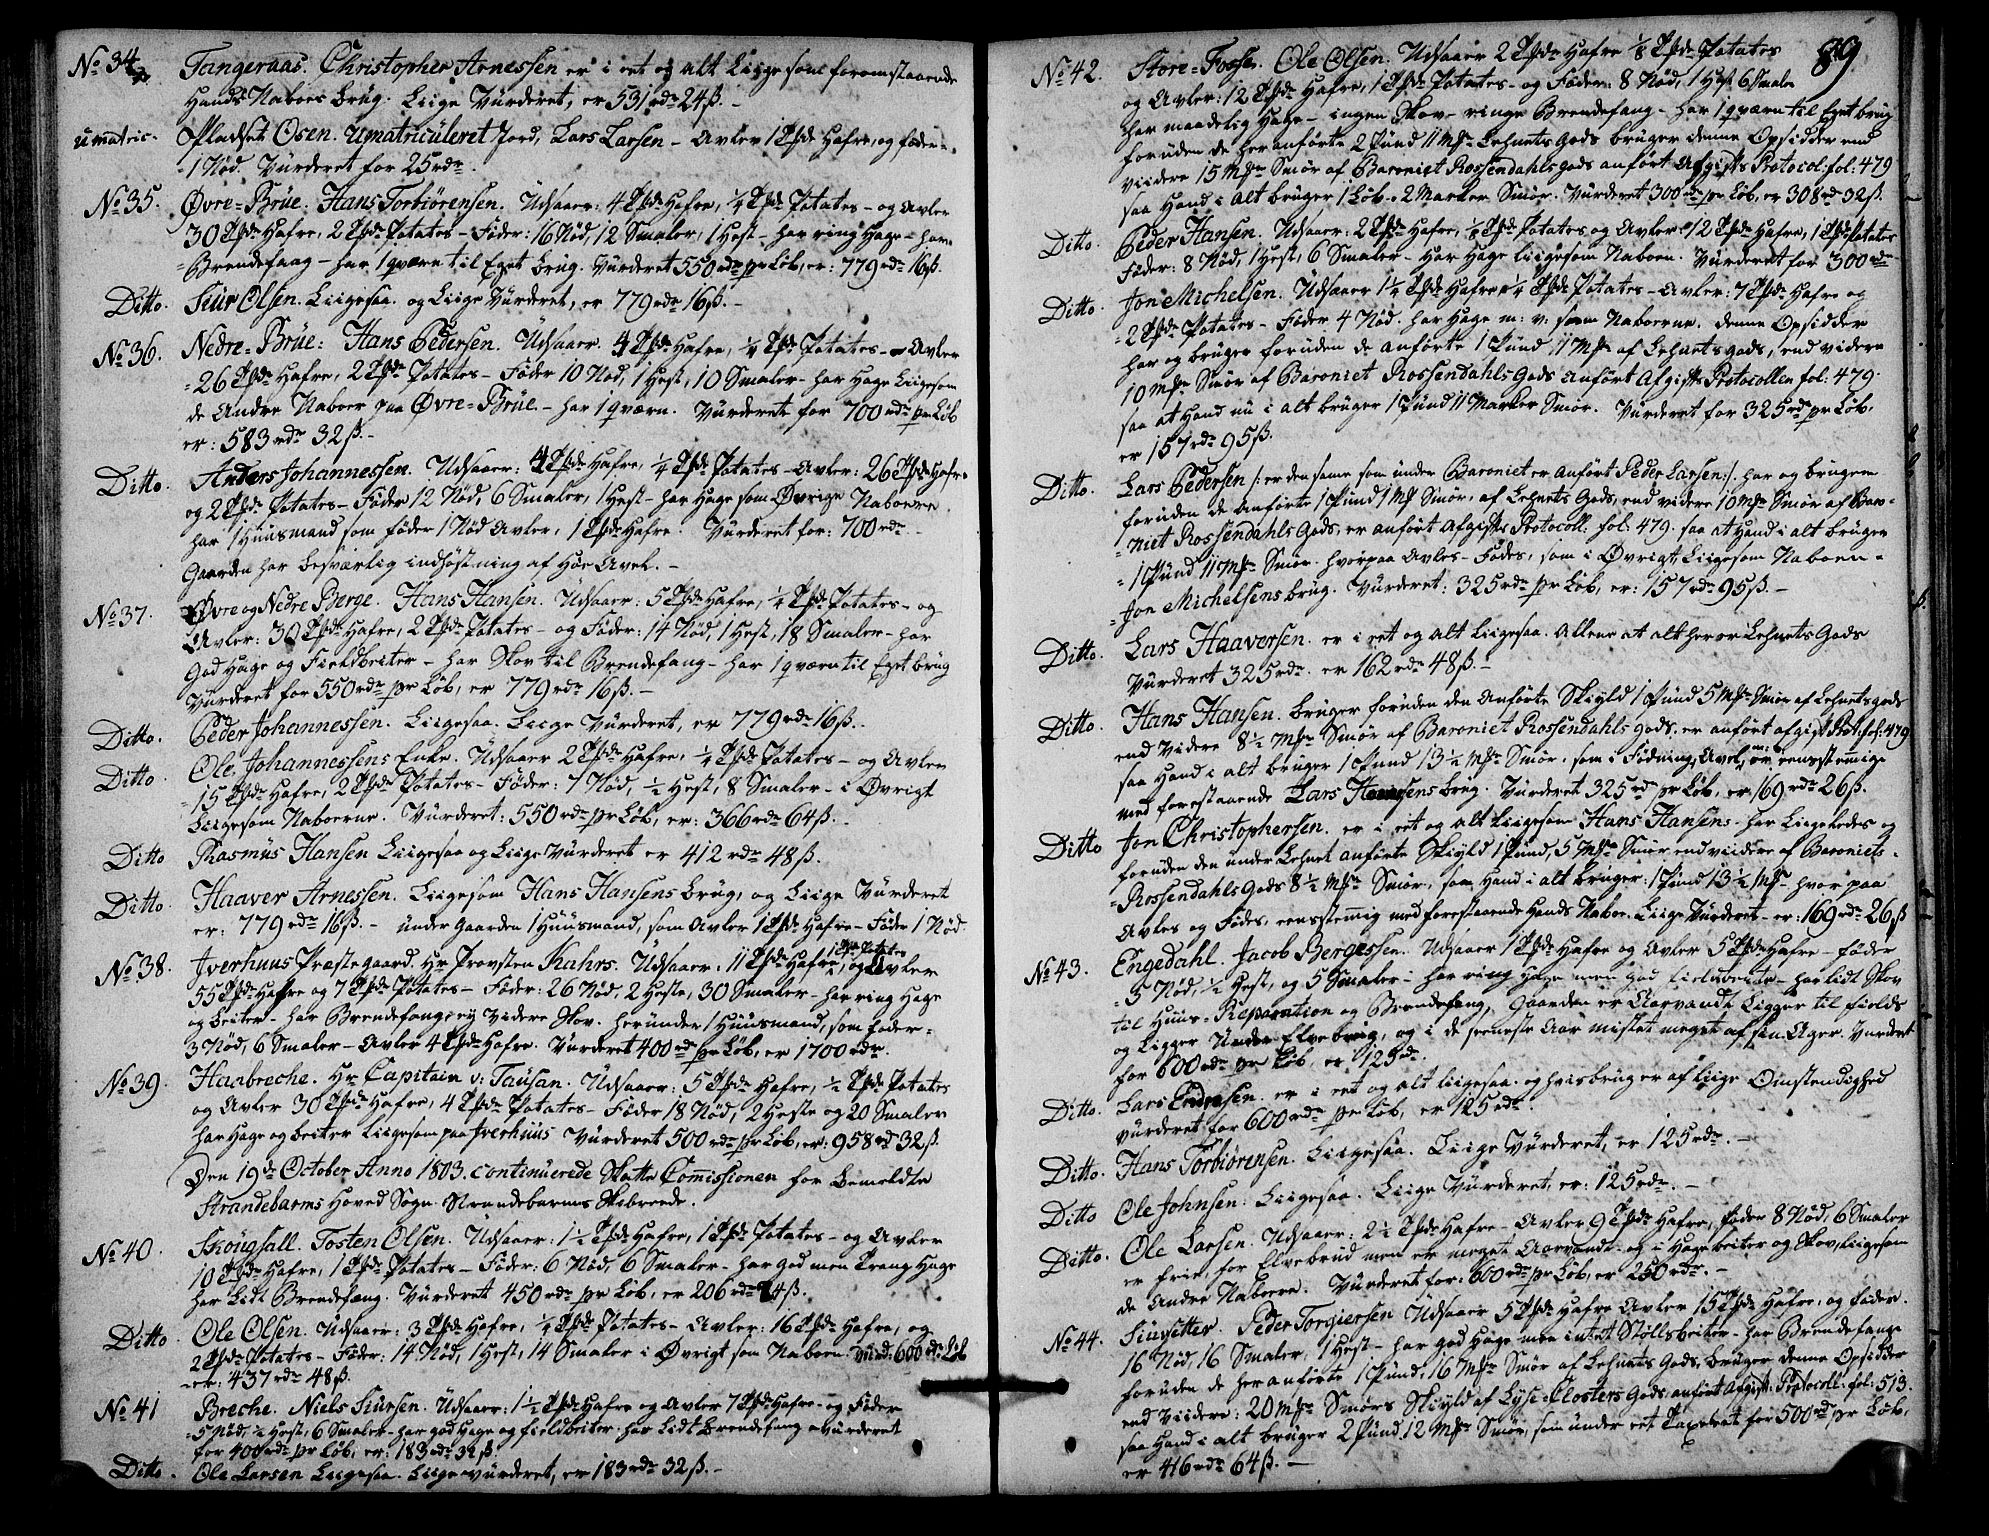 No 34. Tangeraas. Christopher Arnessen er i eet og alt Liigesom foromstaaende
Hands Naboes brug. Liige Vurderet, er 531 rdr 24 ß. -
umatric. Pladset Osen. Umatriculeret Jord, Lars Larsen - Avler 1 Tde Hafre, og føder
1 Nød. Vurderet for 25 rdr.
No 35. Øvre-Brüe. Hans Torbiörensen. Udsaaer: 4 Tde Hafre, 1/4 Tde Potates - og Avler
30 Tde Hafre, 2 Tde Potates - Føder: 16 Nød, 12 Smaler, 1 Hest - har ring Hage - har
Brendefaag - har 1 qværn til Eget brug. Vurderet 550 rdr pr Løb, er: 779 rdr 16 ß.
Ditto. Siur Olsen. Liigesaa. og Liige Vurderet, er 779 rdr 16 ß. -
No 36. Nedre-Brüe: Hans Pedersen. Udsaaer. 4 Tde Hafre, 1/4 Tde Potates - Avler
26 Tde Hafre, 2 Tde Potates - Føder 10 Nød, 1 Hest, 10 Smaler - har Hage Liigesom
de Andre Naboer paa Øvre-Brüe - har 1 qværn. Vurderet for 700 rdr pr Løb
er: 583 rdr 32 ß. -
Ditto. Anders Johannessen. Udsaaer: 4 Tde Hafre, 1/4 Tde Potates - Avler: 26 Tde Hafre
og 2 Tde Potates - Føder 12 Nød, 6 Smaler, 1 Hest - har Hage som Øvrige Naboere.
har 1 Huusmand som føder 1 Nød Avler, 1 Tde Hafre. Vurderet for: 700 rdr. -
Gaarden har besværlig indhøstning af Høe Avel. -
No 37. Øvre og Nedre Berge. Hans Hansen. Udsaaer: 5 Tde Hafre, 1/4 Tde Potates - og
Avler: 30 Tde Hafre, 2 Tde Potates - og Føder: 14 Nød, 1 Hest, 18 Smaler - har
God Hage og Fieldbeiter - har Skov til Brendefang - har 1 qværn til Eget brug
Vurderet for 550 rdr pr Løb, er 779 rdr 16 ß. -
Ditto. Peder Johannessen. Liigesaa. Liige Vurderet, er 779 rdr 16 ß. -
Ditto Ole Johannessens Enke. Udsaaer 2 Tde Hafre, 1/4 Tde Potates - og Avler
15 Tde Hafre, 2 Tde Potates - Føder: 7 Nød, 1/2 Hest, 8 Smaler - i Øvrigt
Liigesom Naboerne. Vurderet: 550 rdr pr Løb, er: 366 rdr 64 ß. -
Ditto Rasmus Hansen Liigesaa og Liige Vurderet er 412 rdr 48 ß.
Ditto. Haaver Arnessen. Liigesom Hans Hansens brug, og Liige Vurderet
er: 779 rdr 16 ß. - under Gaarden 1 Huusmand, som Avler 1 Tde Hafre - Føder 1 Nød.
No 38. Iverhuus Præstegaard. Hr Provsten Kahrs. Udsaaer. 11 Tde Hafre, 1 Tde Potates og Avler
55 Tde Hafre og 7 Tde Potates - Føder: 26 Nød, 2 Heste, 30 Smaler - har ring Hage
og beiter - har Brendefang, ey Videre Skov. herunder 1 Huusmand, som føder
3 Nød, 6 Smaler - Avler 4 Tde Hafre. Vurderet 400 rdr pr Løb, er 1700 rdr.
No 39. Haabreche. Hr Capitain v: Tausan. Udsaaer: 5 Tde Hafre, 1/2 Tde Potates
og Avler 30 Tde Hafre, 4 Tde Potates - Føder 18 Nød, 2 Heste og 20 Smaler
har Hage og beiter Liigesom paa Iverhuus Vurderet 500 rdr pr Løb, er: 958 rd 32 ß.
Den 19de October Anno 1803. continuerede Skatte Comissionen for bemeldte
Strandebarms Hoved Sogn Strandebarms Skibreede.
No 40. Skougsall. Tosten Olsen. Udsaaer: 1 1/2 Tde Hafre, 1 Tde Potates - og Avler
10 Tde Hafre, 1 Tde Potates - Føder: 6 Nød, 6 Smaler - har god men Trang Hage
har Lidt Brendefang. Vurderet 450 rdr pr Løb, er 206 rdr 24 ß.
Ditto. Ole Olsen. Udsaaer: 3 Tde Hafre, 1/4 Tde Potates - Avler: 16 Tde Hafre, og
2 Tde Potates - Føder: 14 Nød, 1 Hest, 14 Smaler i Øvrigt som Naboen. Vurd: 600 rdr Løb
er: 437 rdr 48 ß.
No 41 Breche. Niels Siursen. Udsaaer: 1 1/2 Tde Hafre og Avler 7 Tde Hafre - og Føder
5 Nød, 1/2 Hest, 6 Smaler - har god Hage og fieldbeiter - har Lidt Brendefang - Vurderet
for 400 rdr pr Løb, er: 183 rdr 32 ß.
Ditto. Ole Larsen Liigesaa. Liige vurderet, er 183 rdr 32 ß. -
89
No 42. Store-Fosse. Ole Olsen. Udsaaer 2 Tde Hafre 1/8 Tde Potates
og Avler: 12 Tde Hafre, 1 Tde Potates - og Føder: 8 Nød, 1 Hest 6 Smaler
har maadelig Hage - ingen Skov - ringe Brendefang - har 1 qværn til Eget brug
foruden de heranførte 2 Pund 11 Mkr Lehnets Gods bruger denne Opsidder end
viidere 15 Mkr Smør af Baroniet Rossendahls gods anført Afgifts Protocol: fol: 479
saa Hand i alt bruger 1 Løb. 2 Marker Smør. Vurderet 300 rdr pr Løb, er 308 rd 32 ß.
Ditto. Peder Hansen. Udsaaer: 2 Tde Hafre, 1/8 Tde Potates og Avler 12 Tde Hafre, 1 Tde Potates
Føder: 8 Nød, 1 Hest, 6 Smaler - Har Hage liigesom Naboen. Vurderet for 300 rdr
Ditto. Jon Michelsen. Udsaaer 1 1/4 Tde Hafre 1/4 Tde Potates - Avler: 7 Tde Hafre og
2 Tde Potates - Føder 4 Nød. har Hage m: v: som Naboerne. denne Opsidder
har og bruger foruden de anførte 1 Pund 11 Mkr af Lehnets gods, end videre
10 Mkr Smør af Baroniet Rossendahls Gods anført Afgifts Protocollen fol: 479.
saa at Hand nu i alt bruger 1 Pund 11 Marker Smør. Vurderet for 325 rdr pr Løb,
er 157 rdr 95 ß.
Ditto. Lars Pedersen /: er den samme som under Baroniet er anført Peder Larsen :/ har og bruger
foruden de anførte 1 Pund 1 Mk Smør, af Lehnets Gods, end videre 10 Mkr Smør af Baro-
niet Rossendahls Gods, er anført Afgifts Protocoll. fol: 479. saa at Hand i alt bruger
1 Pund 11 Mkr Smør. hvorpaa Avles - Fødes, som i Øvrigt Liigesom Naboen
Jon Michelsens brug. Vurderet: 325 rdr pr Løb, er: 157 rdr 95 ß. -
Ditto. Lars Haaversen. er i eet og alt Liigesaa. Allene at alt her er Lehnets Gods
Vurderet 325 rdr. er 162 rdr 48 ß. -
Ditto. Hans Hansen. bruger foruden den Anførte Skyld 1 Pund 5 Mkr Smør af Lehnets gods
end Videre 8 1/2 Mkr Smør af Baroniet Rossendahls gods. er anført afgifts Prot: fol: 479
saa Hand i alt bruger 1 Pund 13 1/2 Mkr Smør. som i Fødning, Avel, er eensstemmige
med forestaaende Lars Haaversens brug. Vurderet 325 rd pr Løb, er 169 rdr 26 ß.
Ditto Jon Christophersen. er i eet og alt Liigesom Hans Hansens - har Liigeledes og
foruden den under Lehnet anførte Skyld 1 Pund, 5 Mkr Smør end viidere af Baroniets
Rossendahls Gods 8 1/2 Mkr Smør, som Hand i alt bruger: 1 Pund 13 1/2 Mkr hvor paa
Avles og Fødes, eensstemig med forestaaende Hands Naboe. Liige Vurderet - er: 169 rdr 26 ß
No 43. Engedahl. Jacob Bergessen. Udsaaer 1 Tde Hafre og Avler 5 Tde Hafre - Føder
5 Nød, 1/2 Hest, og 5 Smaler - har ring Hage men god Fieldbeiter - har lidt Skov
til Huus-Reparation og Brendefang, Gaarden er Aarvandt Ligger til fields
og Ligger Under Elvebrug, og i de seeneste Aar mistet meget af sin Ager. Vurderet
for 600 rdr pr Løb, er 125 rdr.
Ditto. Lars Endresen. er i eet og alt liigesaa. og hvis brug er af liige Omstendighed
vurderet for 600 rdr pr Løb, er 125 rdr.
Ditto. Hans Torbiörensen. Liigesaa. Liige Vurderet, er 125 rdr. -
Ditto Ole Johnsen. Liigesaa. Liige Vurderet, er: 125 rdr. -
Ditto. Ole Larsen. Udsaaer: 2 1/2 Tde Hafre - Avler 9 Tde Hafre, føder 8 Nød, 6 Smaler
er frie for Elvebrud men er meget Aarvandt - og i Hage beiter og Skov, liigesom
de Andre Naboere. Vurderet for: 600 rdr pr Løb, er 250 rdr. -
No 44. Siusetter. Peder Torgiersen Udsaaer 5 Tde Hafre Avler 15 Tde Hafre, og føder.
16 Nød, 16 Smaler, 1 Hest - har god Hage men intet Støllsbeiter - har Brendefange
foruden de heranførte 1 Pund, 16 Mkr Smør af Lehnets Gods, bruger denne Opsidder
end Viidere: 20 Mkr Smørs Skyld af Lyse Closters Gods, anført Afgift: Protocoll: fol: 513.
saa Hand i alt bruger 2 Pund 12 Mkr Smør, som under eet Taxeret for 500 rdr pr Løb,
er 416 rdr 64 ß. -